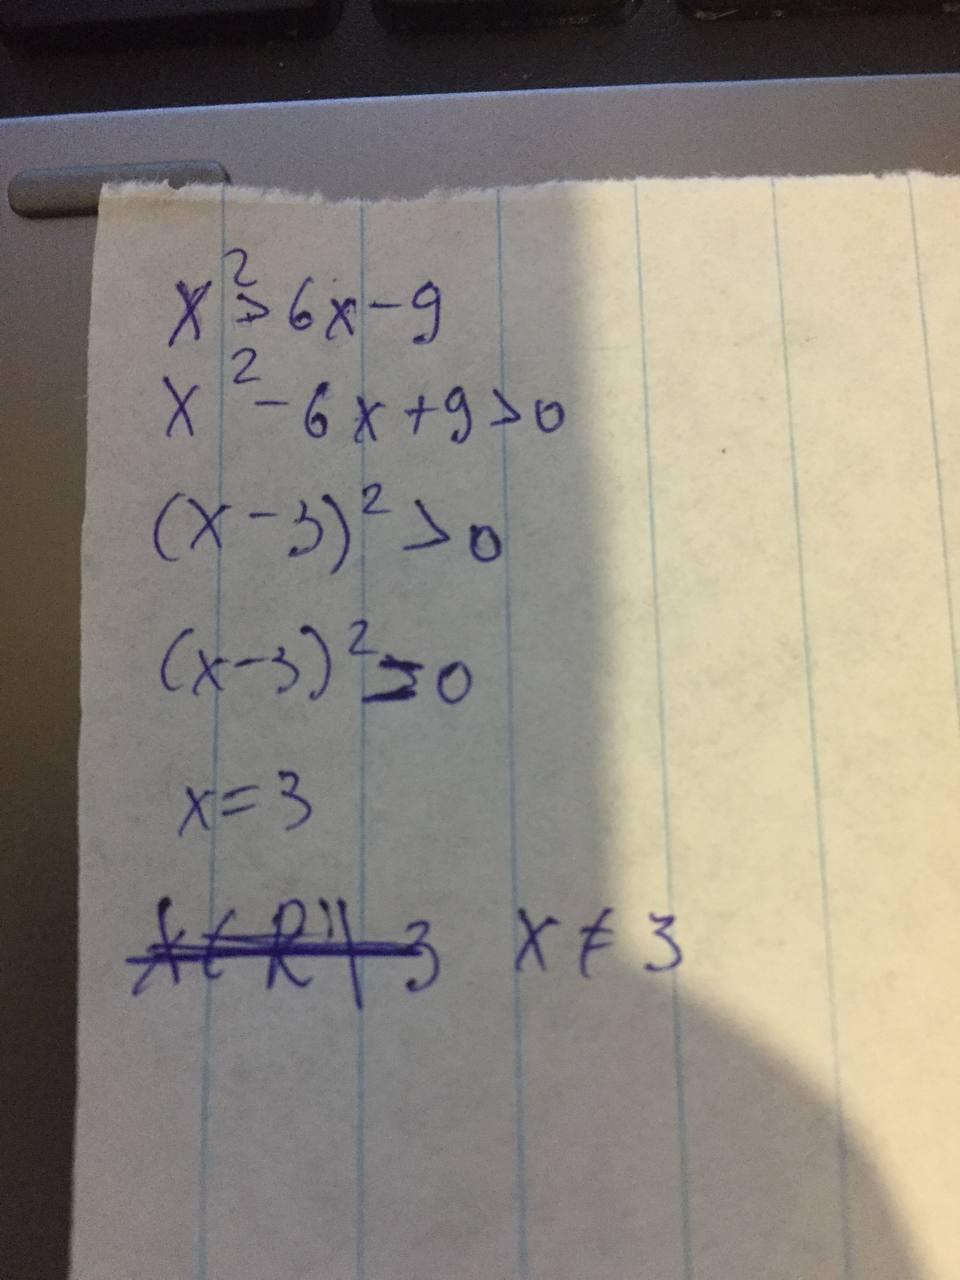 x² > 6x - 9
x² - 6x + 9 > 0
(x - 3)² > 0
(x - 3)² ≥ 0
x = 3
x ≠ 3